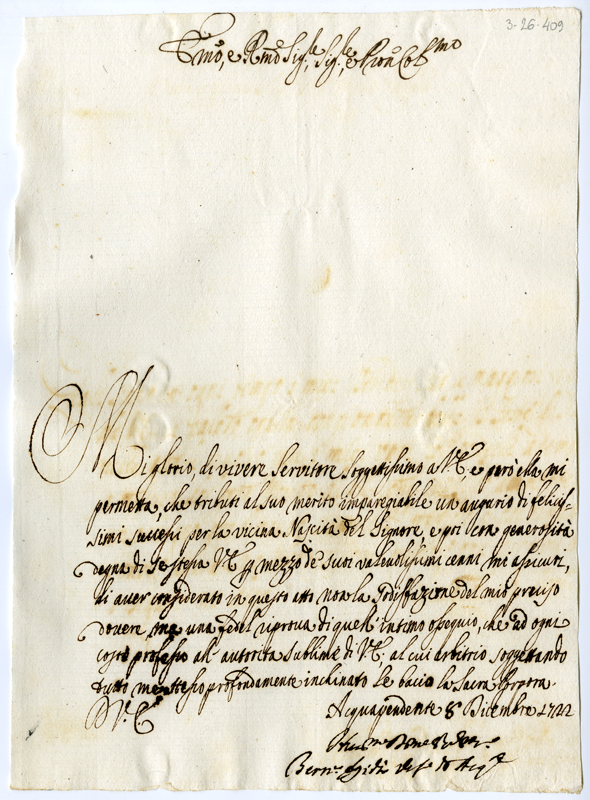 3-26-409
Emo, e Rmo Sigre, Sigre, e Pron Colmo
Mi glorio, di vivere servitore soggettissimo a V. E., e però ella mi
permetta, che tributi al suo merito impareggiabile un augurio di felicis=
simi successi per la vicina Nascità del Signore, e poi con generosità
degna di se stessa V. E. p mezzo de suoi valevolissimi cenni mi assicuri,
di aver considerato in questo atto non la sodisfazione del mio preciso
dovere, ma una fedel riprova di quell' intimo ossequio, che ad ogni
costo professo all' autorità sublime di V. E. al cui arbitrio soggettando
tutto me stesso profondamente inchinato le bacio la Sacra Porpora.
D V. E.
Acquapendente 8 Dicembre 1722